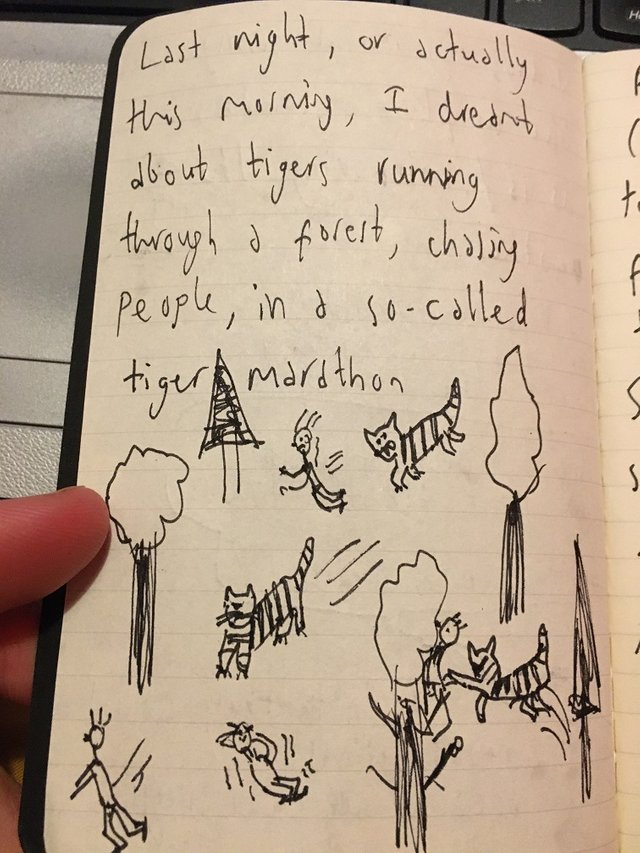 Last night, or actually
this morning, I dreamt
about tigers running
through a forest, chasing
people, in a so-called
tiger marathon